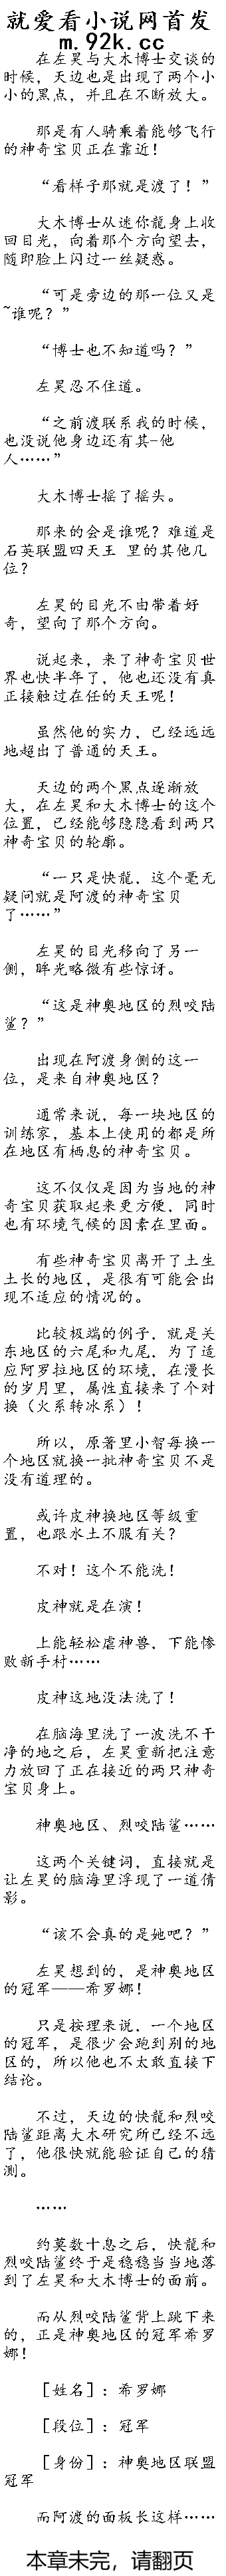 就爱看小说网首发
m.92k.cc
在左昊与大木博士交谈的
时候，天边也是出现了两个小
小的黑点，并且在不断放大。
那是有人骑乘着能够飞行
的神奇宝贝正在靠近！
“看样子那就是渡了！”
大木博士从迷你龍身上收
回目光，向着那个方向望去，
随即脸上闪过一丝疑惑。
“可是旁边的那一位又是
~谁呢？”
“博士也不知道吗？”
左昊忍不住道。
“之前渡联系我的时候，
也没说他身边还有其-他
人……”
大木博士摇了摇头。
那来的会是谁呢？难道是
石英联盟四天王 里的其他几
位？
左昊的目光不由带着好
奇，望向了那个方向。
说起来，来了神奇宝贝世
界也快半年了，他也还没有真
正接触过在任的天王呢！
虽然他的实力，已经远远
地超出了普通的天王。
天边的两个黑点逐渐放
大，在左昊和大木博士的这个
位置，已经能够隐隐看到两只
神奇宝贝的轮廓。
“一只是快龍，这个毫无
疑问就是阿渡的神奇宝贝
了……”
左昊的目光移向了另一
侧，眸光略微有些惊讶。
“这是神奥地区的烈咬陆
鲨？”
出现在阿渡身侧的这一
位，是来自神奥地区？
通常来说，每一块地区的
训练家，基本上使用的都是所
在地区有栖息的神奇宝贝。
这不仅仅是因为当地的神
奇宝贝获取起来更方便，同时
也有环境气候的因素在里面。
有些神奇宝贝离开了土生
土长的地区，是很有可能会出
现不适应的情况的。
比较极端的例子，就是关
东地区的六尾和九尾，为了适
应阿罗拉地区的环境，在漫长
的岁月里，属性直接来了个对
换（火系转冰系）！
所以，原著里小智每换一
个地区就换一批神奇宝贝不是
没有道理的。
或许皮神换地区等级重
置，也跟水土不服有关？
不对！这个不能洗！
皮神就是在演！
上能轻松虐神兽，下能惨
败新手村……
皮神这地没法洗了！
在脑海里洗了一波洗不干
净的地之后，左昊重新把注意
力放回了正在接近的两只神奇
宝贝身上。
神奥地区、烈咬陆鲨……
这两个关键词，直接就是
让左昊的脑海里浮现了一道倩
影。
“该不会真的是她吧？”
左昊想到的，是神奥地区
的冠军——希罗娜！
只是按理来说，一个地区
的冠军，是很少会跑到别的地
区的，所以他也不太敢直接下
结论。
不过，天边的快龍和烈咬
陆鲨距离大木研究所已经不远
了，他很快就能验证自己的猜
测。
……
约莫数十息之后，快龍和
烈咬陆鲨终于是稳稳当当地落
到了左昊和大木博士的面前。
而从烈咬陆鲨背上跳下来
的，正是神奥地区的冠军希罗
娜！
［姓名］：希罗娜
［段位］：冠军
［身份］：神奥地区联盟
冠军
而阿渡的面板长这样……
本章未完，请翻页